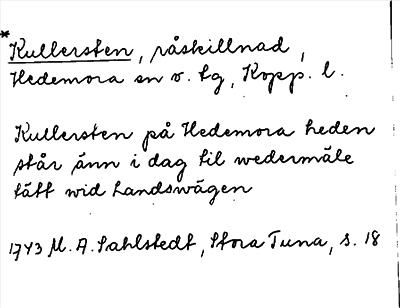 * Kullersten, råskillnad,
Hedemora sn o. tg, Kopp. l.
Kullersten på Hedemora heden
står änn i dag til wedermäle
tätt wid Landswägen
1743 M. A. Sahlstedt, Stora Tuna, s. 18